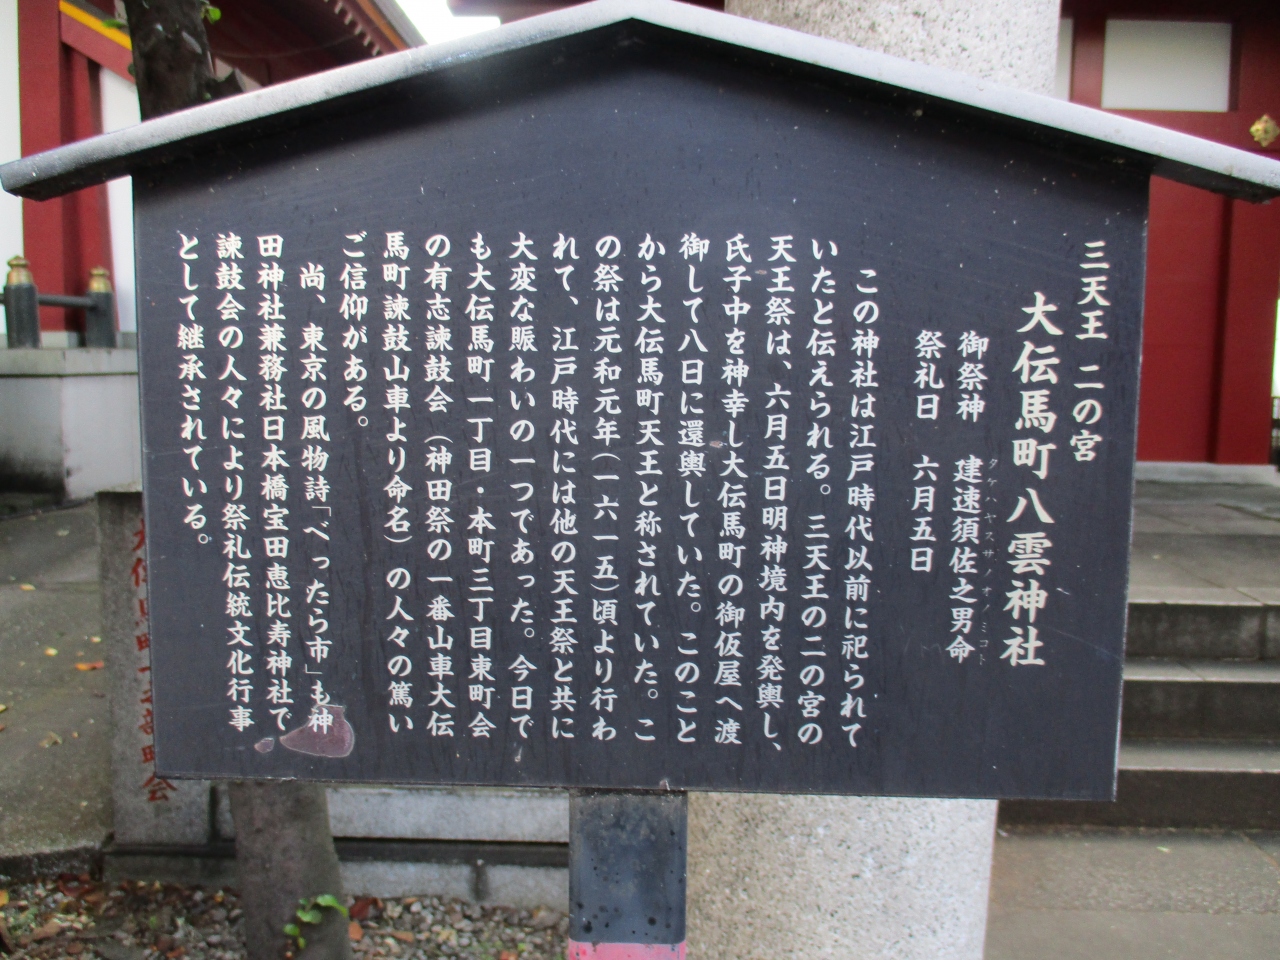 三天王 二の宮
大伝馬町八雲神社
御祭神 建速須佐之男命
タケハヤスサノオノミコト
祭礼日 六月五日
この神社は江戸時代以前に祀られて
いたと伝えられる。三天王の二の宮の
天王祭は、六月五日明神境内を発輿し、
氏子中を神幸し大伝馬町の御仮屋へ渡
御して八日に還輿していた。このこと
から大伝馬町天王と称されていた。こ
の祭は元和元年(一六一五)頃より行わ
れて、江戸時代には他の天王祭と共に
大変な賑わいの一つであった。今日で
も大伝馬町一丁目・本町三丁目東町会
の有志諫鼓会(神田祭の一番山車大伝
馬町諫鼓山車より命名)の人々の篤い
ご信仰がある。
尚、東京の風物詩「べったら市」も神
田神社兼務社日本橋宝田恵比寿神社で
諫鼓会の人々により祭礼伝統文化行事
として継承されている。